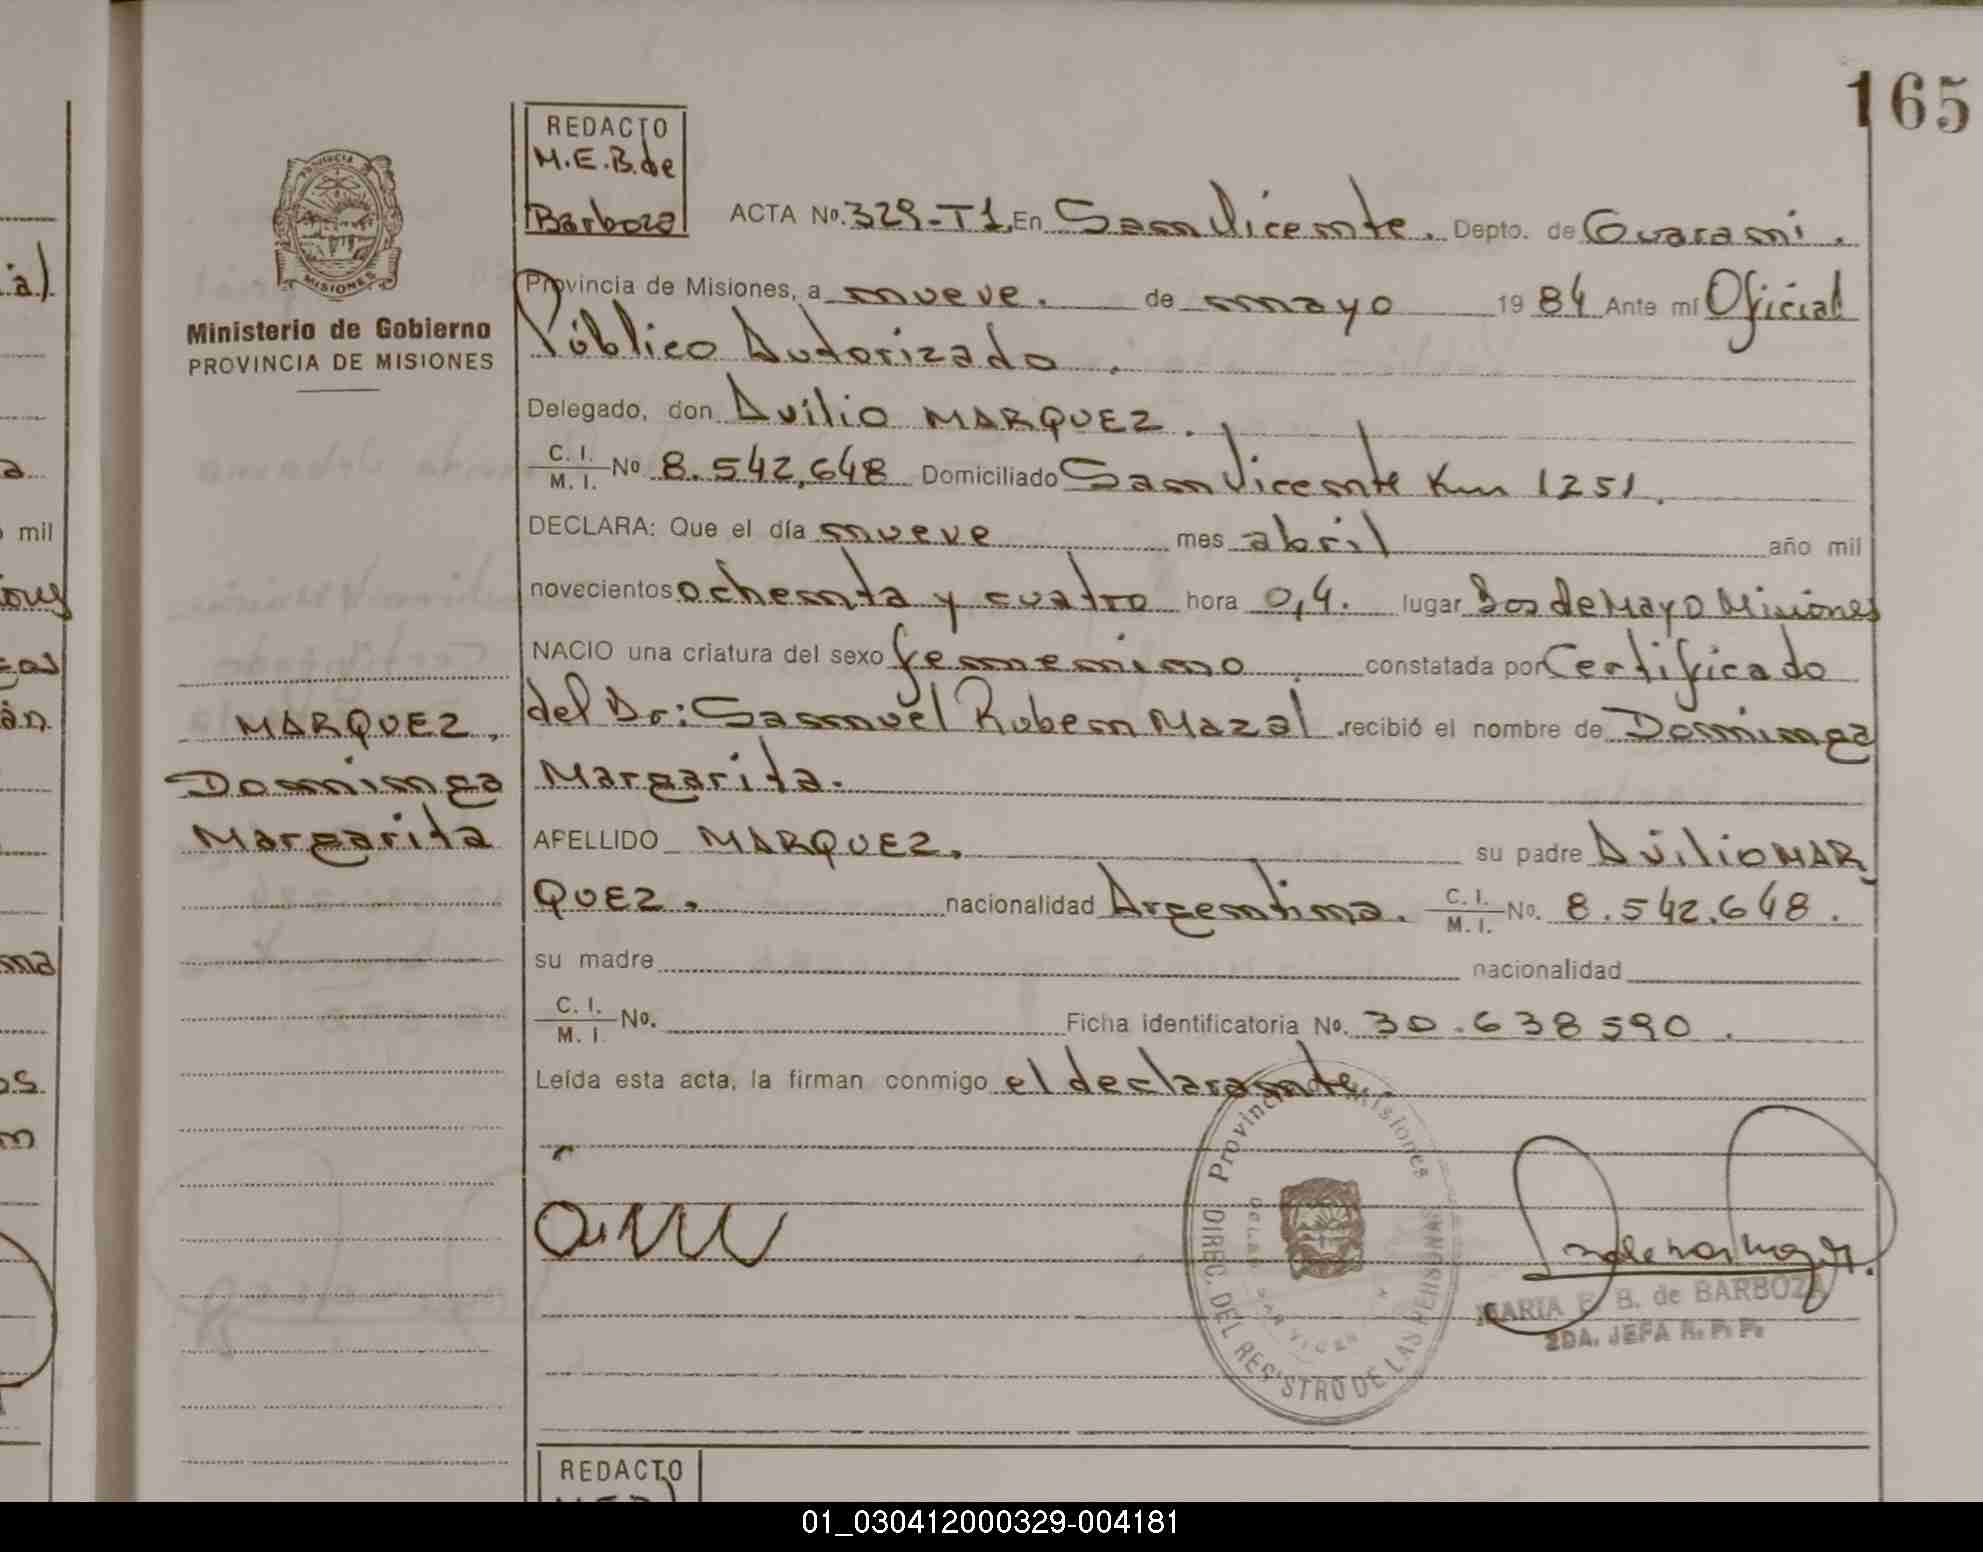 165
REDACTO
M.E.B. de
Barboza
PROVINCIA
MISIONES
Ministerio de Gobierno
PROVINCIA DE MISIONES
ACTA No. 329-T1. En San Vicente. Depto. de Guarani.
Provincia de Misiones, a nueve. de mayo 1984 Ante mí Oficial
Público Autorizado.
Delegado, don Avilio MARQUEZ.
C. I. / M. I. No 8.542,648 Domiciliado San Vicente Km 1251.
DECLARA: Que el día nueve mes abril año mil
novecientos ochenta y cuatro hora 0,4. lugar Dos de Mayo Misiones
NACIO una criatura del sexo femenino constatada por Certificado
del Dr: Samuel Ruben Mazal. recibió el nombre de Dominga
Margarita.
MARQUEZ,
Dominga
Margarita
APELLIDO MARQUEZ. su padre Avilio MAR
QUEZ. nacionalidad Argentina. C. I. / M. I. No. 8.542.648.
su madre nacionalidad
C. I. / M. I. No. Ficha identificatoria No. 30.638590.
Leída esta acta, la firman conmigo el declarante.
Provincia de Misiones
DIREC. DEL REGISTRO DE LAS PERSONAS
MARIA E. B. de BARBOZA
2DA. JEFA R. P. P.
REDACTO
a).
a
mil
án
01_030412000329-004181